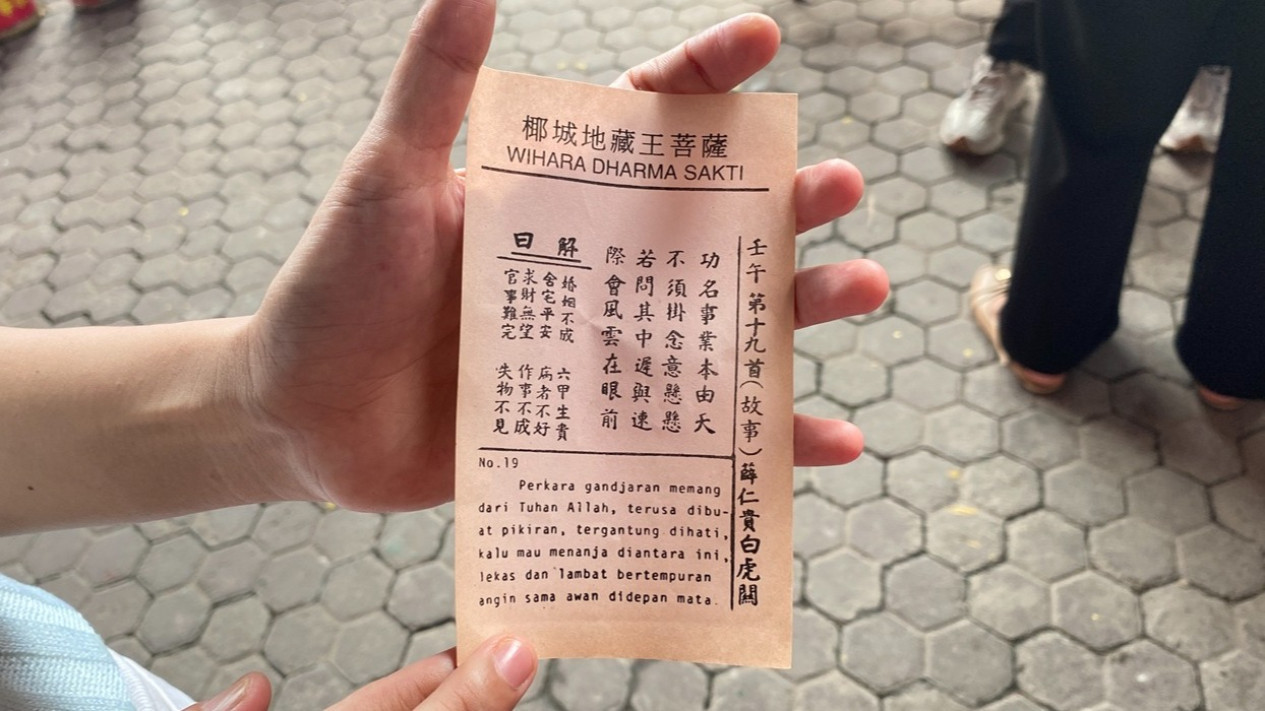 椰城地藏王菩薩
WIHARA DHARMA SAKTI
壬午 第十九首(故事)薛仁貴白虎關
功名事業本由天
不須掛念意懸懸
若問其中遲與速
際會風雲在眼前
解曰
婚姻不成 六甲生貴
舍宅平安 病者不好
求財無望 作事不成
官事難完 失物不見
No.19
Perkara gandjaran memang
dari Tuhan Allah, terusa dibu-
at pikiran, tergantung dihati,
kalu mau menanja diantara ini,
lekas dan lambat bertempuran
angin sama awan didepan mata.